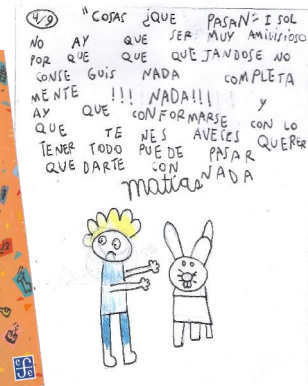 4/9 "COSAS ¿QUE PASAN" ISOL
NO AY QUE SER MUY AMIVISIOSO
POR QUE QUE QUEJANDOSE NO
CONSE GUIS NADA COMPLETA
MENTE !!! NADA!!! y
AY QUE CONFORMARSE CON LO
QUE TE NES AVECES QUERER
TENER TODO PUEDE PASAR
QUE DARTE CON NADA
matías
cfe